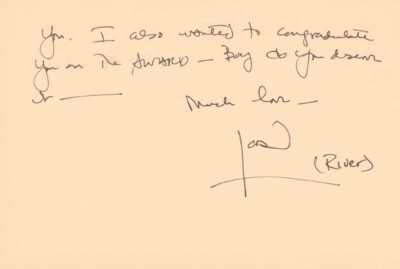 you. I also wanted to congradulate
you on The AWARD — Boy do you deserve
it —
Much love —
(River)